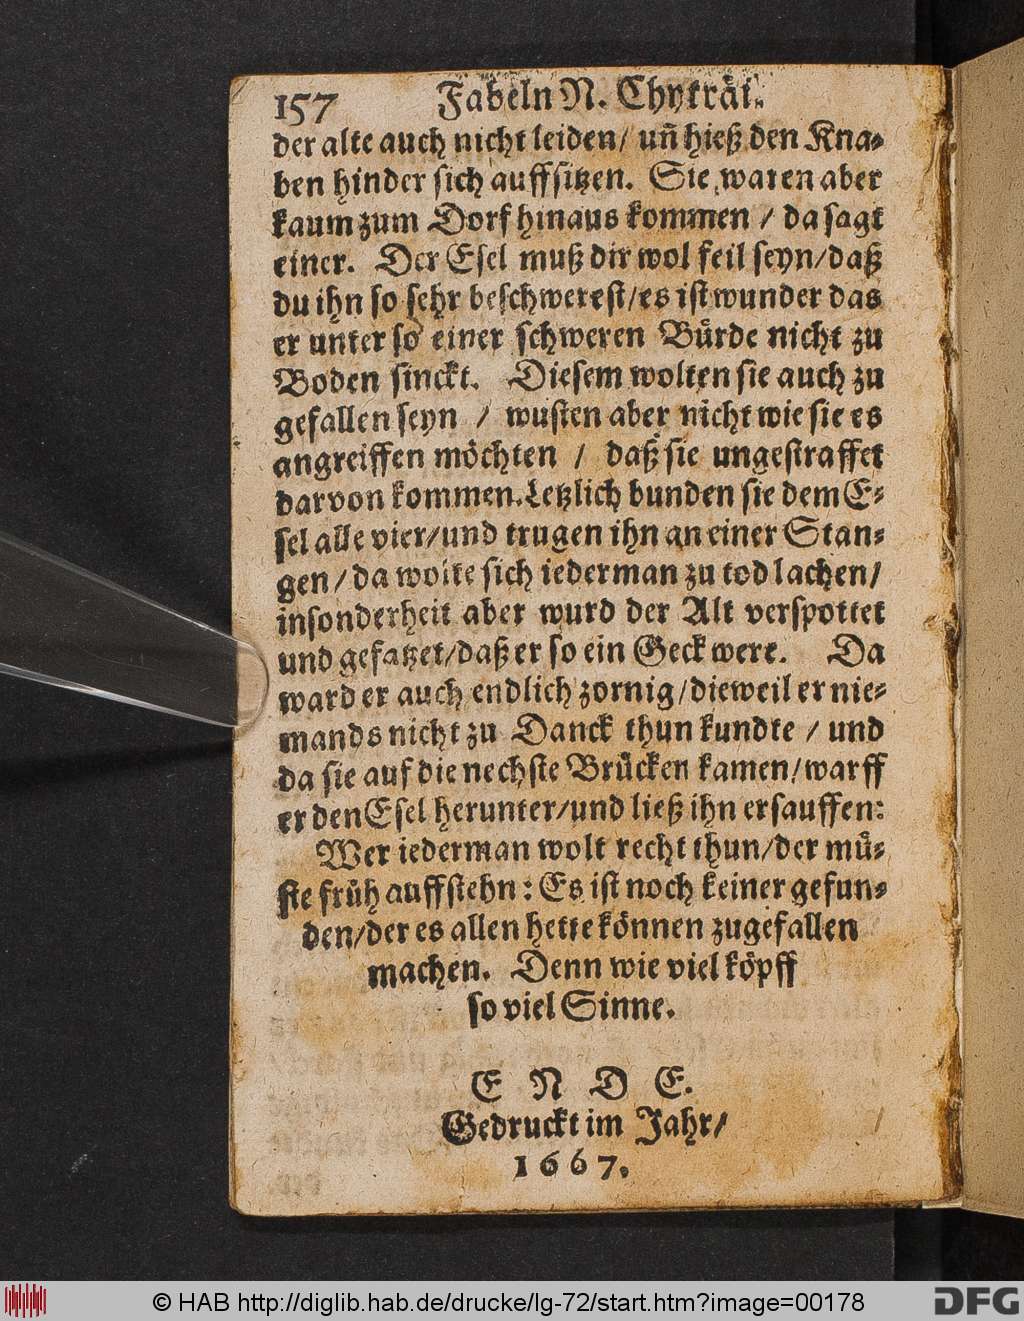 157 Fabeln N. Chytræi.
der alte auch nicht leiden/ uñ hieß den Kna-
ben hinder sich auffsitzen. Sie waren aber
kaum zum Dorf hinaus kommen / da sagt
einer. Der Esel muß dir wol feil seyn/daß
du ihn so sehr beschwerest/es ist wunder das
er unter so einer schweren Bürde nicht zu
Boden sinckt. Diesem wolten sie auch zu
gefallen seyn / wusten aber nicht wie sie es
angreiffen möchten / daß sie ungestraffet
darvon kommen. Letzlich bunden sie dem E-
sel alle vier/und trugen ihn an einer Stan-
gen/da wolte sich iederman zu tod lachen/
insonderheit aber wurd der Alt verspottet
und gefatzet/daß er so ein Geck were. Da
ward er auch endlich zornig/dieweil er nie-
mands nicht zu Danck thun kundte / und
da sie auf die nechste Brücken kamen/warff
er den Esel herunter/und ließ ihn ersauffen:
Wer iederman wolt recht thun/der mü-
ste früh auffstehn: Es ist noch keiner gefun-
den/der es allen hette können zugefallen
machen. Denn wie viel köpff
so viel Sinne.
E N D E.
Gedruckt im Jahr/
1667.
© HAB http://diglib.hab.de/drucke/lg-72/start.htm?image=00178
DFG